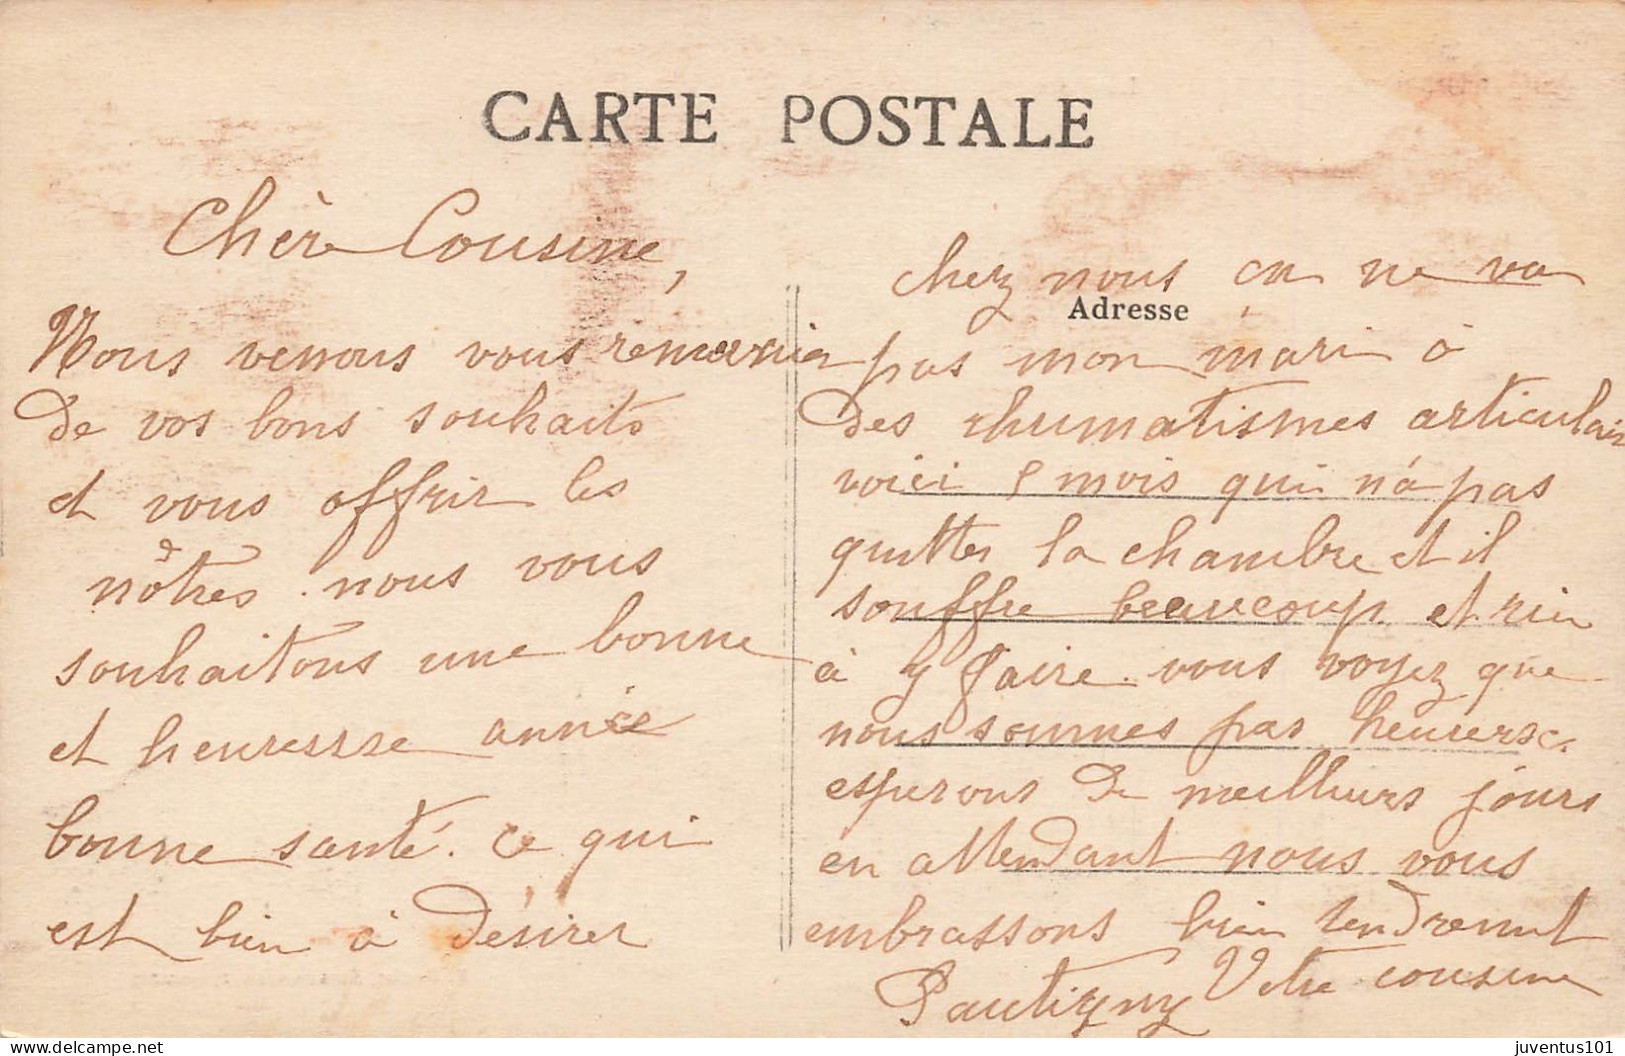 CARTE POSTALE
Chère Cousine,
Nous venons vous remercier
de vos bons souhaits
et vous offrir les
nôtres. nous vous
souhaitons une bonne
et heuresse année
bonne santé. ce qui
est bien à désirer
chez nous ça ne va
Adresse
pas mon mari à
des rhumatismes articulair
voici mois qui n'a pas
quitter la chambre et il
souffre beaucoup et rien
à y faire. vous voyez que
nous sommes pas
esperons de meilleurs jours
en attendant nous vous
embrassons bien tendrement
Votre cousine
Pautigny
juventus101